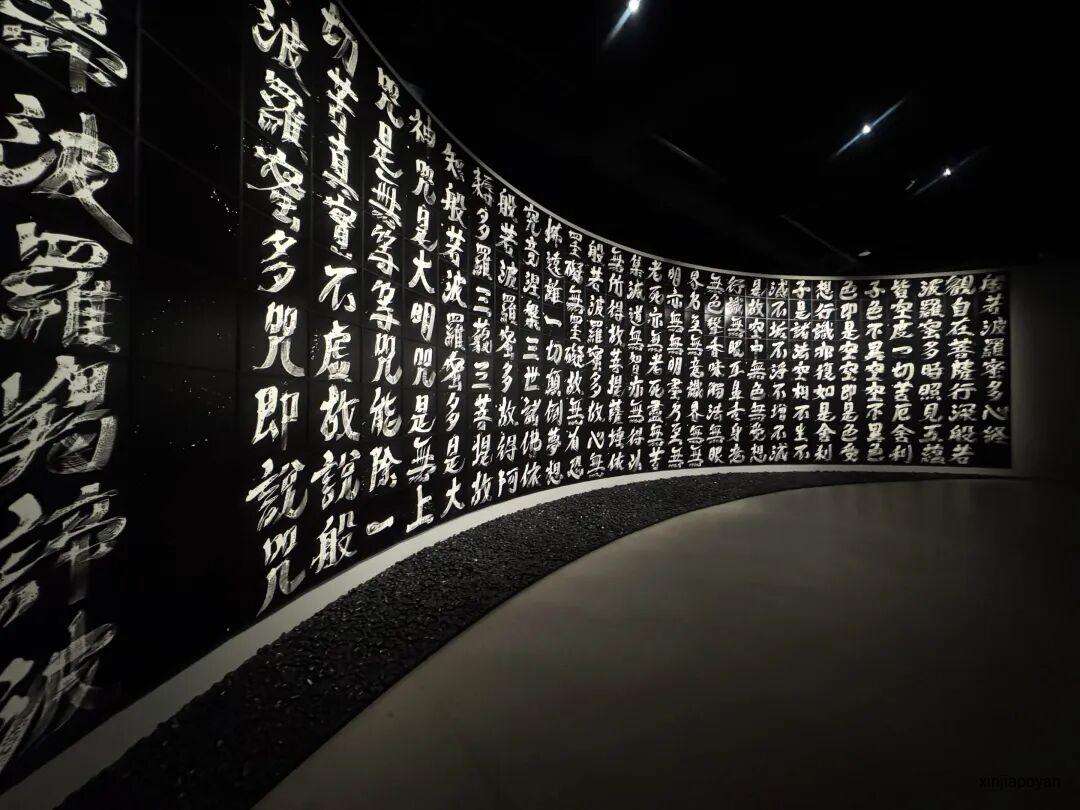 般若波羅蜜多心經
觀自在菩薩行深般若
波羅蜜多時照見五蘊
皆空度一切苦厄舍利
子色不異空空不異色
色即是空空即是色受
想行識亦復如是舍利
子是諸法空相不生不
滅不垢不淨不增不減
是故空中無色無受想
行識無眼耳鼻舌身意
無色聲香味觸法無眼
界乃至無意識界無無
明亦無無明盡乃至無
老死亦無老死盡無苦
集滅道無智亦無得以
無所得故菩提薩埵依
般若波羅蜜多故心無
罣礙無罣礙故無有恐
怖遠離一切顛倒夢想
究竟涅槃三世諸佛依
般若波羅蜜多故得阿
耨多羅三藐三菩提故
知般若波羅蜜多是大
神咒是大明咒是無上
咒是無等等咒能除一
切苦真實不虛故說般
波羅蜜多咒即說咒
諦波羅揭諦波
xinjiapoyan